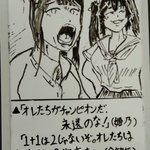 ▲「オレたちがチャンピオンだ。
永遠のな!」(燈乃)
「1+1は2じゃないぞ。オレたちは